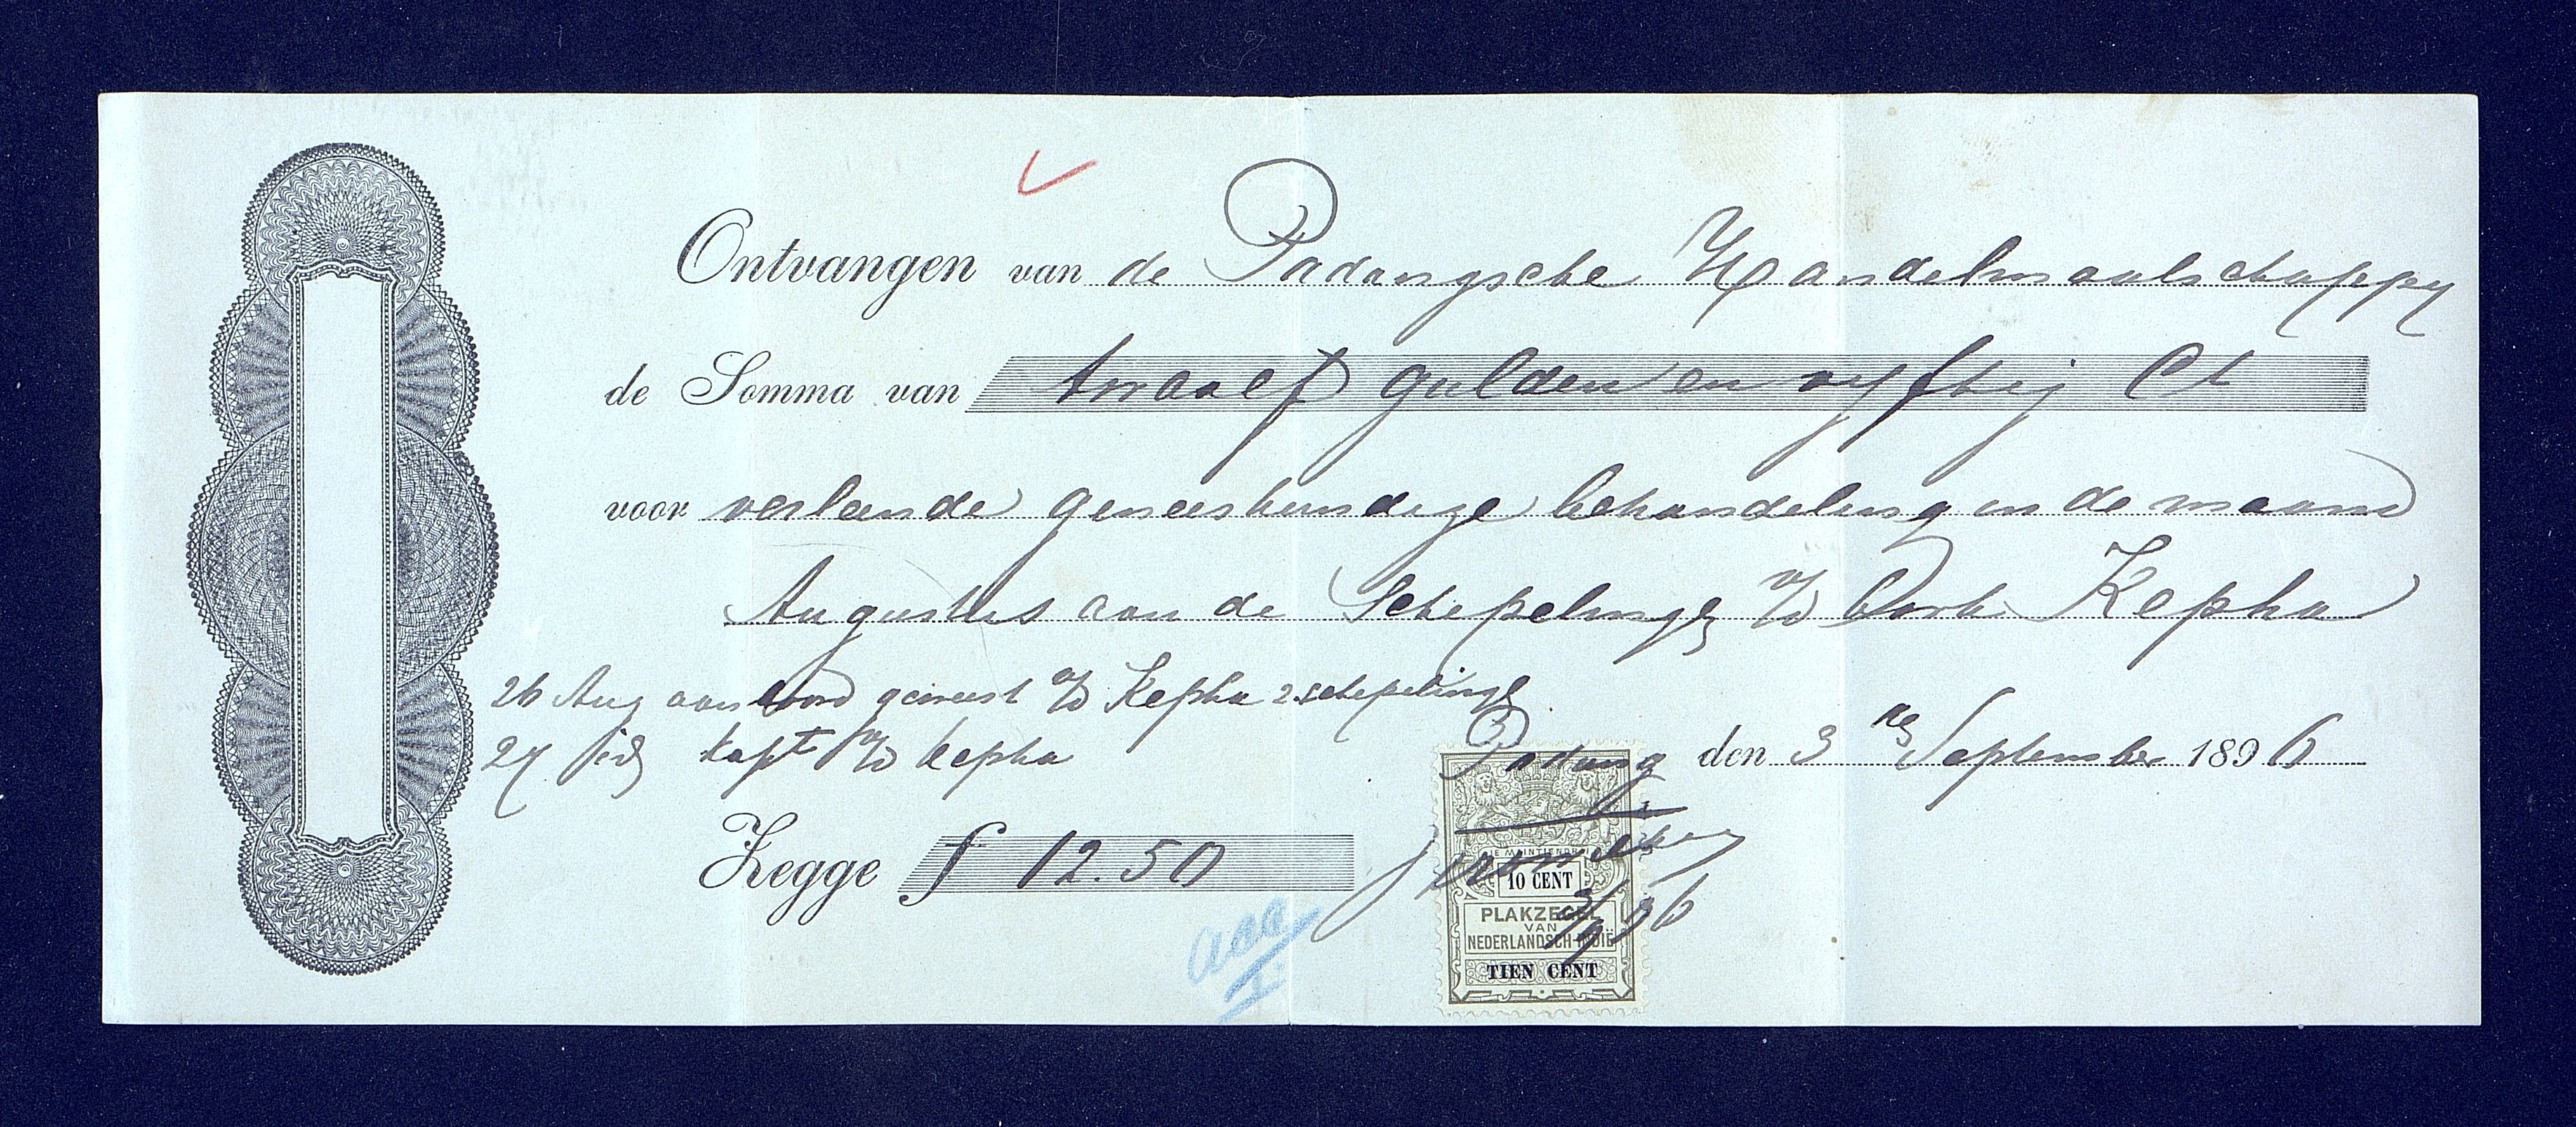 Ontvangen van de Padangsche Handelmaatschappy
de Somma van twaalf gulden en vyftig Ct
voor verleende geneeskundige behandeling in de maand
Augustus aan de Schepelingen v/d bark Kepha
26 Aug aan boord geweest v/d Kepha 2 schepelingen
27 id kapt v/d kepha
Padang den 3 September 1896
Zegge f 12.50
3/9 96
JE MAINTIENDRAI
10 CENT
PLAKZEGEL
VAN
NEDERLANDSCH-INDIË
TIEN CENT